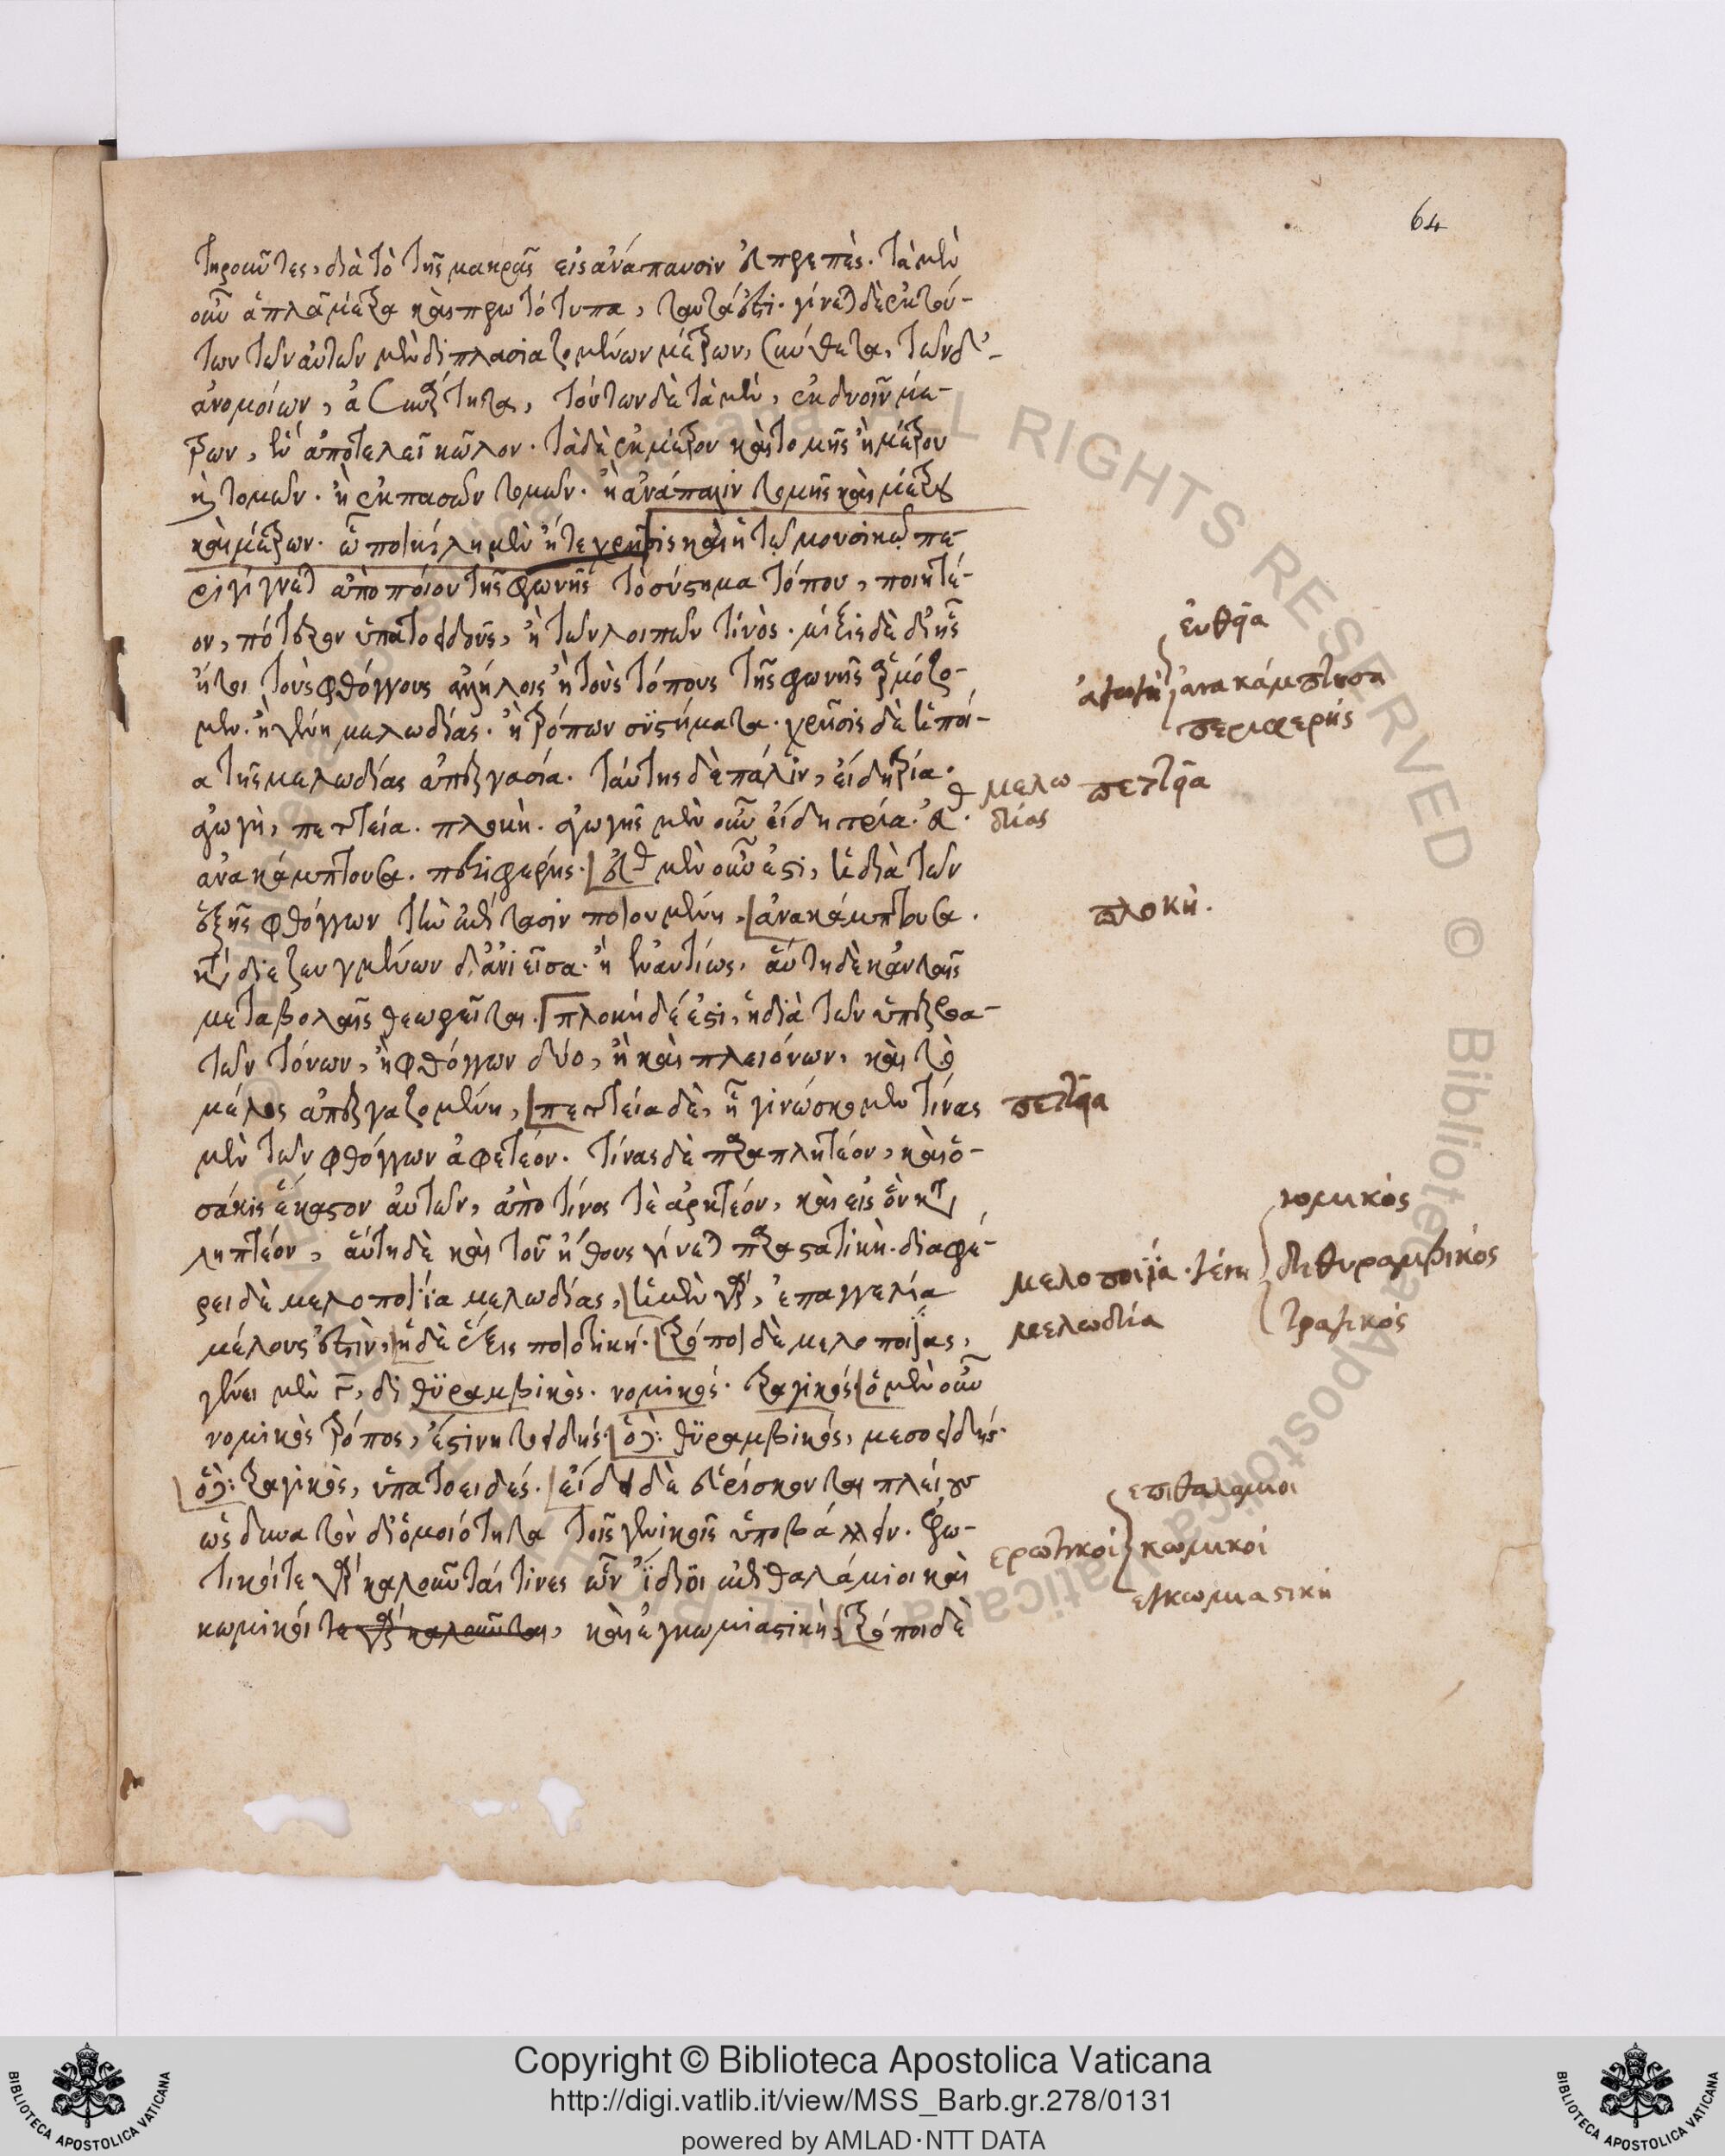 64
τηροῦντες, διὰ τὸ τῆς μακρᾶς εἰς ἀνάπαυσιν εὐπρεπὲς. τὰ μὲν
οὖν ἁπλᾶ μέτρα καὶ πρωτότυπα, ταῦτά ἐστι. γίνεται δὲ ἐκ τού-
των τῶν αὐτῶν μὲν διπλασιαζομένων μέτρων, σύνθετα, τῶν δ'
ἀνομοίων, ἀσυνάρτητα, τούτων δὲ τὰ μὲν, ἐκ δυοῖν μέ-
τρων, ἓν ἀποτελεῖ κῶλον. τὰ δὲ ἐκ μέτρου καὶ τομῆς ἢ μέτρου
καὶ τομῶν. ἢ ἐκ πασῶν τομῶν. ἢ ἀνάπαλιν τομῆς καὶ μέτρου
καὶ μέτρων.
ριγίγνεται ἀπὸ ποίου τῆς φωνῆς τὸ σύστημα τόπου, ποιητέ-
ον, πότερον ὑπατοειδοῦς, ἢ τῶν λοιπῶν τινὸς. μίξις δὲ δι' ἧς
ἤτοι τοὺς φθόγγους ἀλλήλοις ἢ τοὺς τόπους τῆς φωνῆς ἁρμόζο-
μεν. ἢ γένη μελωδίας. ἢ τρόπων συστήματα. χρῆσις δὲ ἡ ποι-
α τῆς μελωδίας ἀπεργασία. ταύτης δὲ πάλιν, εἴδη τρία.
ἀγωγὴ, πεττεία. πλοκὴ. ἀγωγῆς μὲν οὖν εἴδη τρία.
ἀνακάμπτουσα. περιφερής. εὐθεῖα μὲν οὖν ἐστι, ἡ διὰ τῶν
ἑξῆς φθόγγων τὴν ἐπίτασιν ποιουμένη, ἀνακάμπτουσα.
κατὰ διεζευγμένων δ' ἀνιεῖσα. ἢ ἐναντίως, αὕτη δὲ κἀν ταῖς
μεταβολαῖς θεωρεῖται. πλοκὴ δέ ἐστι, ἡ διὰ τῶν ὑπερβα-
τῶν τόνων, ἢ φθόγγων δύο, ἢ καὶ πλειόνων, καὶ τὸ
μέλος ἀπεργαζομένη, πεττεία δὲ, ᾗ γινώσκομεν τίνας
μὲν τῶν φθόγγων ἀφετέον. τίνας δὲ παραπλητέον, καὶ ὁ-
σάκις ἕκαστον αὐτῶν, ἀπὸ τίνος τὲ ἀρκτέον, καὶ εἰς ὃν κατα
ληπτέον, αὕτη δὲ καὶ τοῦ ἤθους γίνεται παραστατικὴ. διαφέ-
ρει δὲ μελοποιΐα μελωδίας, ἡ μὲν γὰρ, ἐπαγγελία
μέλους ἐστὶν, ἡ δὲ ἕξις ποιητική. τρόποι δὲ μελοποιΐας,
γένει μὲν γ, διθυραμβικὸς. νομικός. τραγικός ὁ μὲν οὖν
νομικὸς τρόπος, ἐστι νητοειδής. ὁ δὲ διθυραμβικός, μεσοειδής.
ὁ δὲ τραγικὸς, ὑπατοειδές. εἴδει δὲ εὑρίσκονται πλείους
ὡς δυνατὸν δι' ὁμοιότητα τοῖς γενικοῖς ὑποβάλλειν. ἐρω-
τικοί τε γὰρ καλοῦνταί τινες ὧν ἴδιοι ἐπιθαλάμιοι καὶ
κωμικοί τε γὰρ καλοῦνται, καὶ ἐγκωμιαστική, τρόποι δὲ
εὐθεῖα
ἀγωγὴ ἀνακάμπτουσα
περιφερής
μελω πεττεία
δίας
πλοκὴ.
πεττεία
νομικὸς
μελοποιΐα. γένη διθυραμβικὸς
μελωδία τραγικὸς
επιθαλαμιοι
ερωτικοί κωμικοί
εγκωμιαστικὴ
ALL RIGHTS RESERVED © Biblioteca Apostolica Vaticana
Copyright © Biblioteca Apostolica Vaticana
http://digi.vatlib.it/view/MSS_Barb.gr.278/0131
powered by AMLAD·NTT DATA
BIBLIOTECA APOSTOLICA VATICANA
BIBLIOTECA APOSTOLICA VATICANA